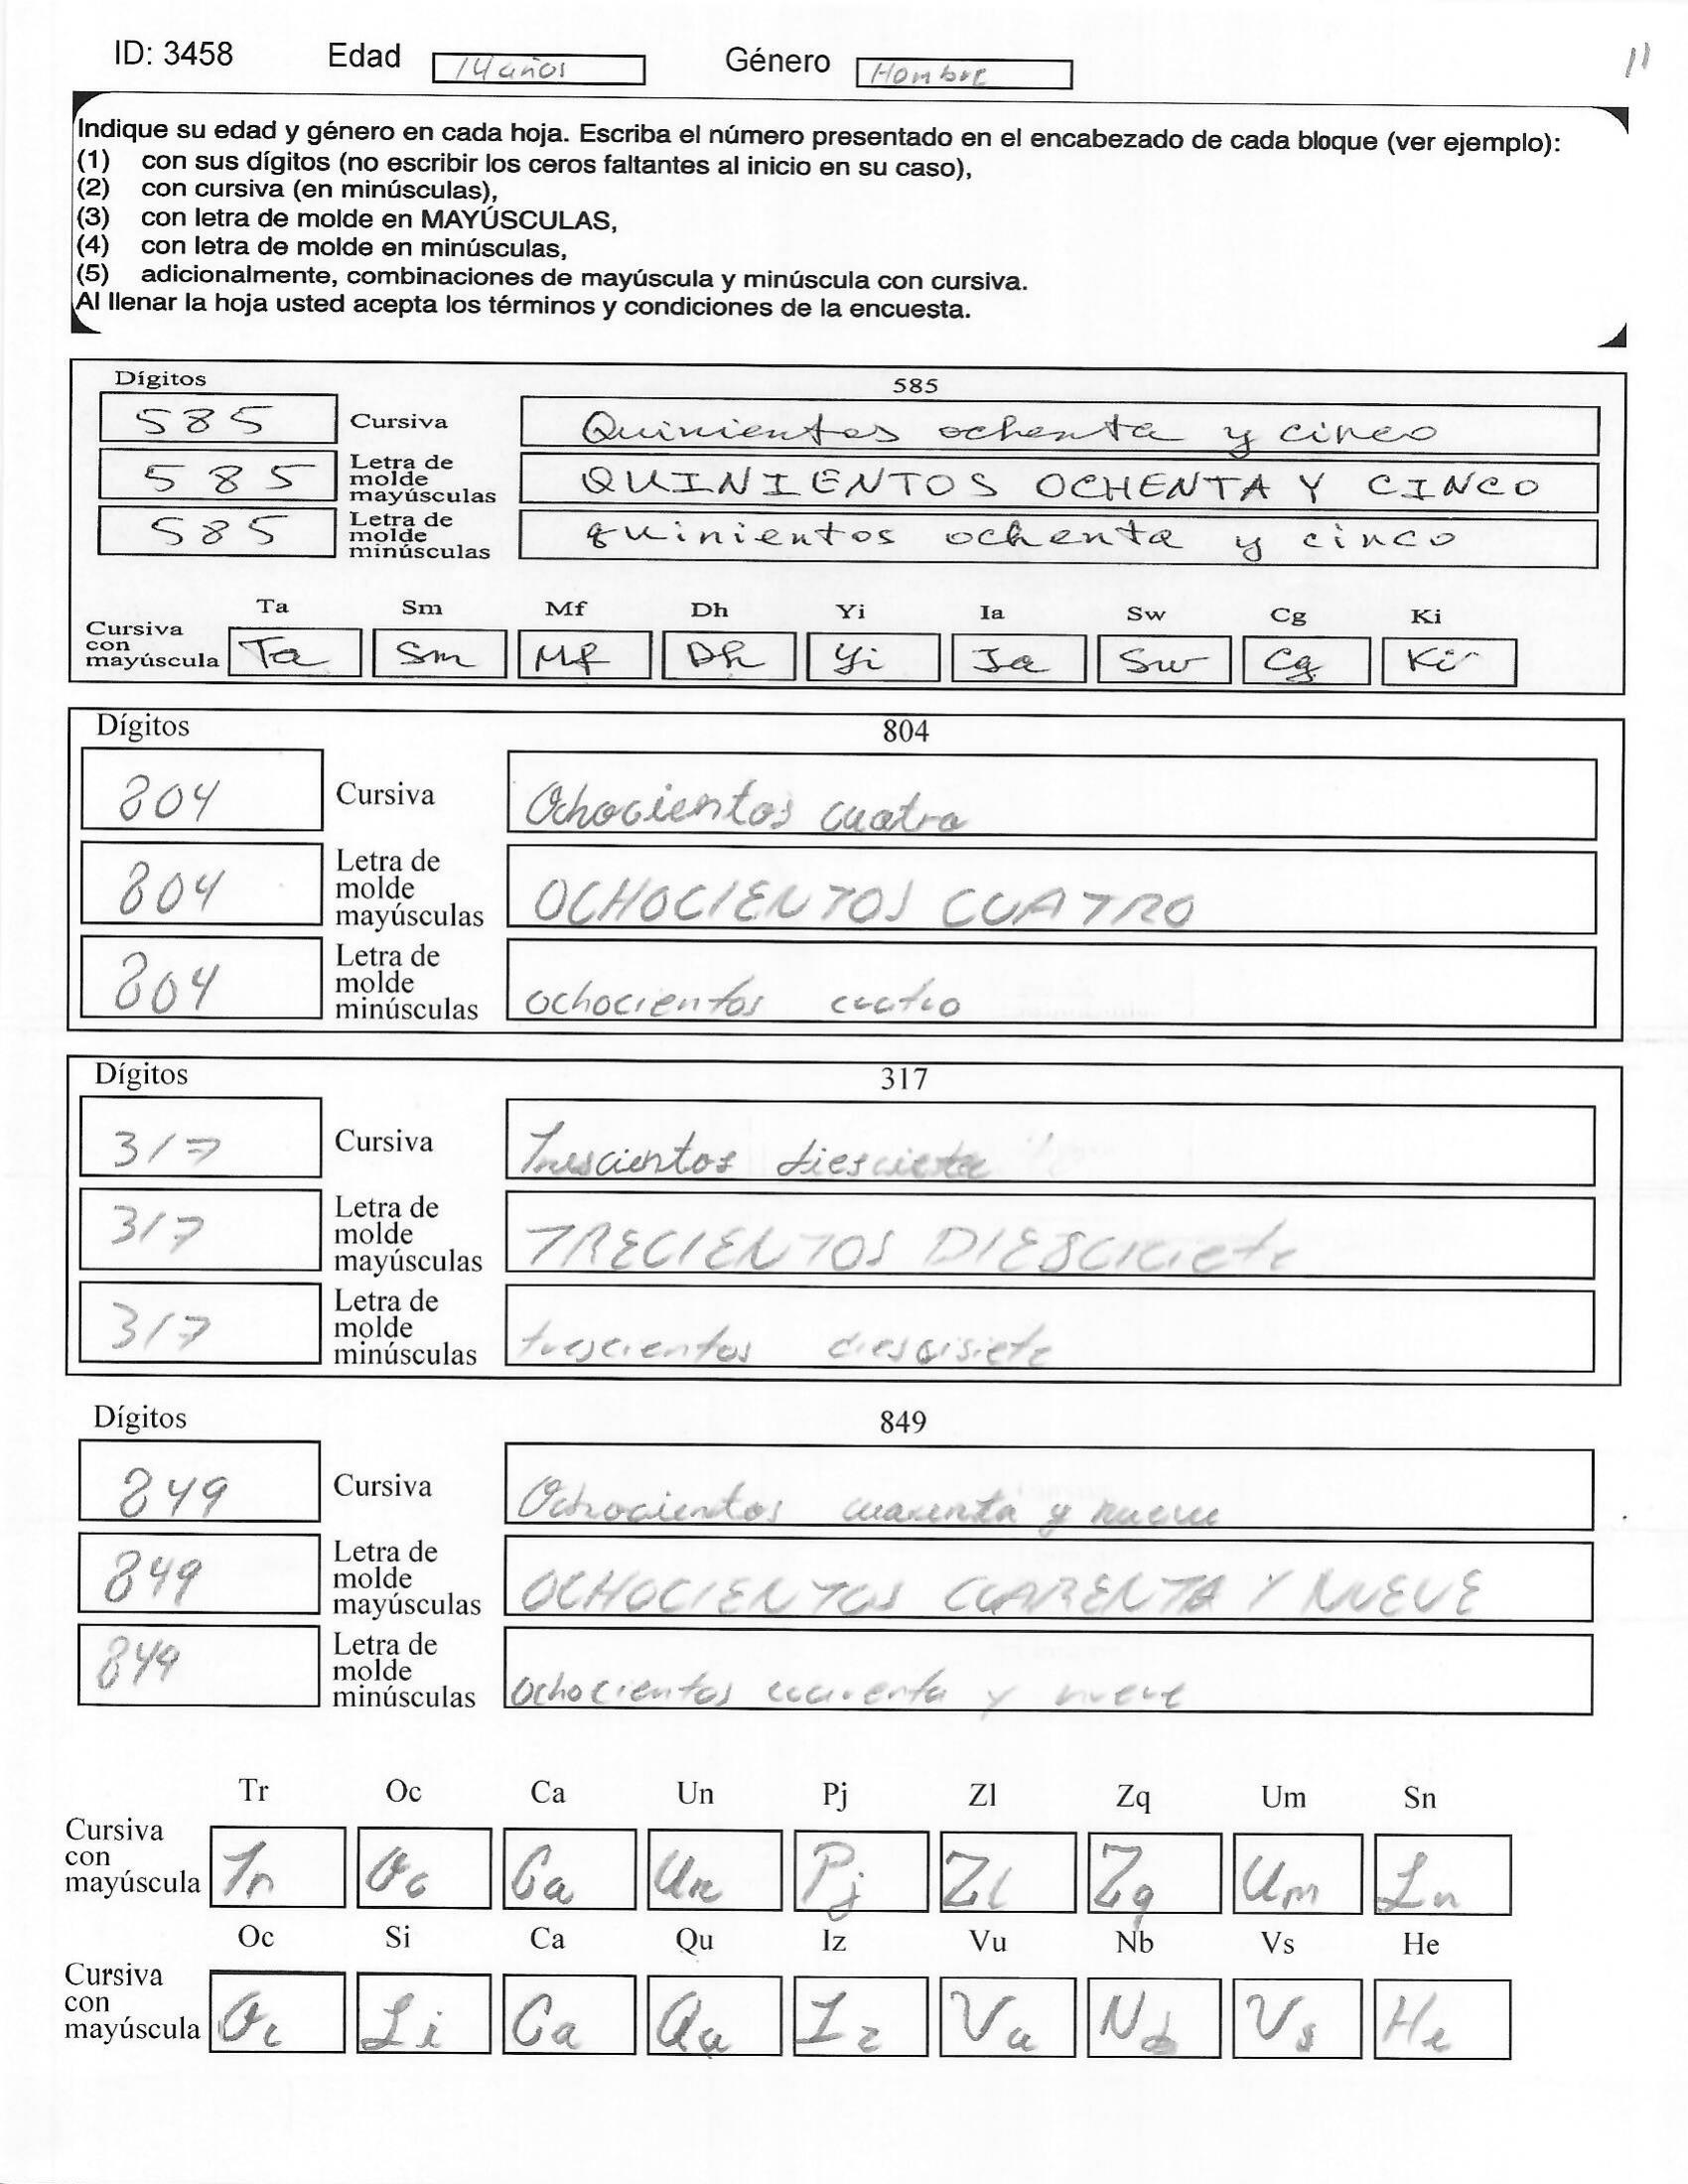 ID: 3458 Edad 14 años Género Hombre 11
Indique su edad y género en cada hoja. Escriba el número presentado en el encabezado de cada bloque (ver ejemplo):
(1) con sus dígitos (no escribir los ceros faltantes al inicio en su caso),
(2) con cursiva (en minúsculas),
(3) con letra de molde en MAYÚSCULAS,
(4) con letra de molde en minúsculas,
(5) adicionalmente, combinaciones de mayúscula y minúscula con cursiva.
Al llenar la hoja usted acepta los términos y condiciones de la encuesta.
Dígitos 585
585 Cursiva Quinientos ochenta y cinco
585 Letra de molde mayúsculas QUINIENTOS OCHENTA Y CINCO
585 Letra de molde minúsculas quinientos ochenta y cinco
Ta Sm Mf Dh Yi Ia Sw Cg Ki
Cursiva con mayúscula Ta Sm Mf Dh Yi Ia Sw Cg Ki
Dígitos 804
804 Cursiva Ochocientos cuatro
804 Letra de molde mayúsculas OCHOCIENTOS CUATRO
804 Letra de molde minúsculas ochocientos cuatro
Dígitos 317
317 Cursiva Trescientos
317 Letra de molde mayúsculas TRECIENTOS
317 Letra de molde minúsculas trescientos
Dígitos 849
849 Cursiva Ochocientos cuarenta y nueve
849 Letra de molde mayúsculas OCHOCIENTOS CUARENTA Y NUEVE
849 Letra de molde minúsculas ochocientos cuarenta y nueve
Tr Oc Ca Un Pj Zl Zq Um Sn
Cursiva con mayúscula Tr Oc Ca Un Pj Zl Zq Um Sn
Oc Si Ca Qu Iz Vu Nb Vs He
Cursiva con mayúscula Oc Si Ca Qu Iz Vu Nb Vs He